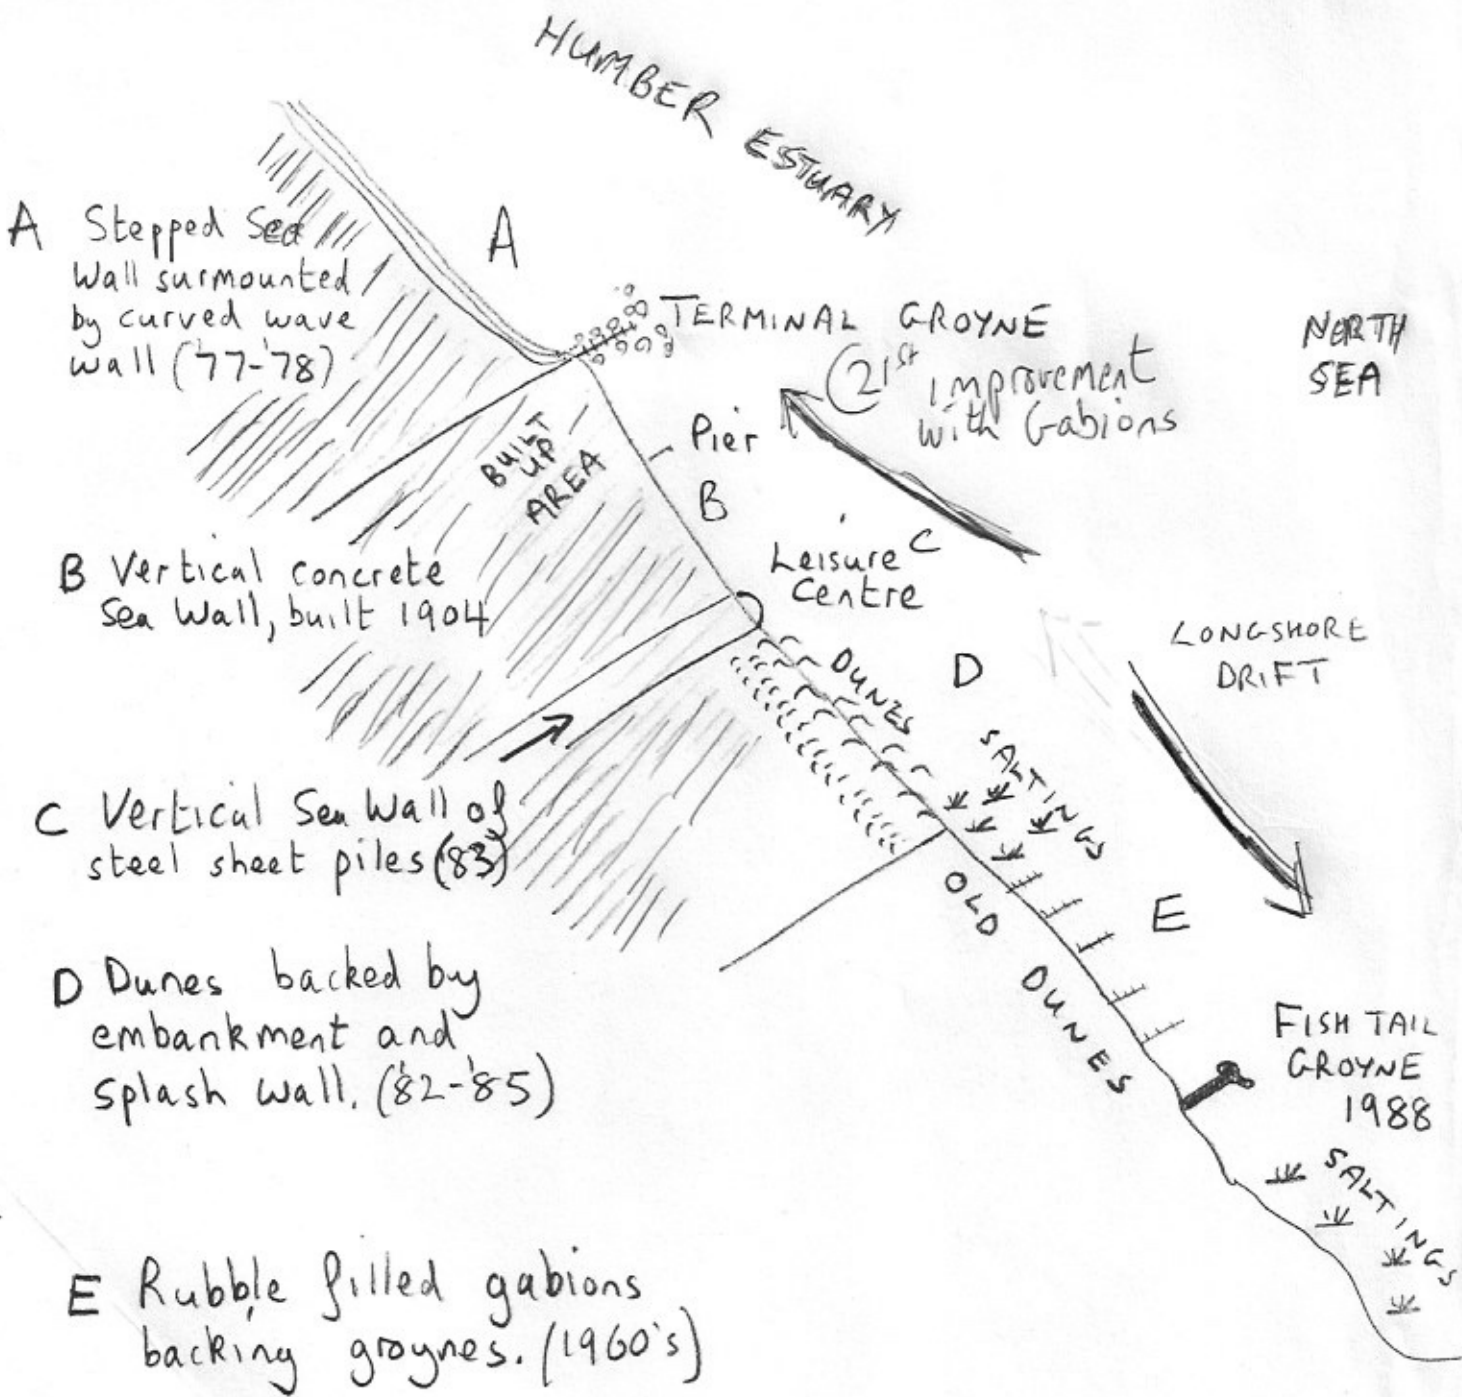 HUMBER ESTUARY
A Stepped Sea
Wall surmounted
by curved wave
wall ('77-'78)
A
TERMINAL GROYNE
21st improvement
with Gabions
NORTH
SEA
BUILT
UP
AREA
Pier
B
B Vertical concrete
Sea Wall, built 1904
Leisure C
Centre
LONGSHORE
DRIFT
DUNES
D
SALTINGS
C Vertical Sea Wall of
steel sheet piles ('83)
OLD DUNES
E
D Dunes backed by
embankment and
splash wall. ('82-'85)
FISH TAIL
GROYNE
1988
SALTINGS
E Rubble filled gabions
backing groynes. (1960's)